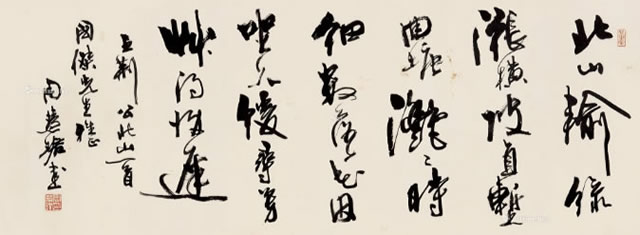 北山輸綠
漲橫陂直塹
回塘灩々時
細數落花因
坐久緩尋芳
草得歸遲
王荆公北山一首
國傑先生雅正
周慧珺書